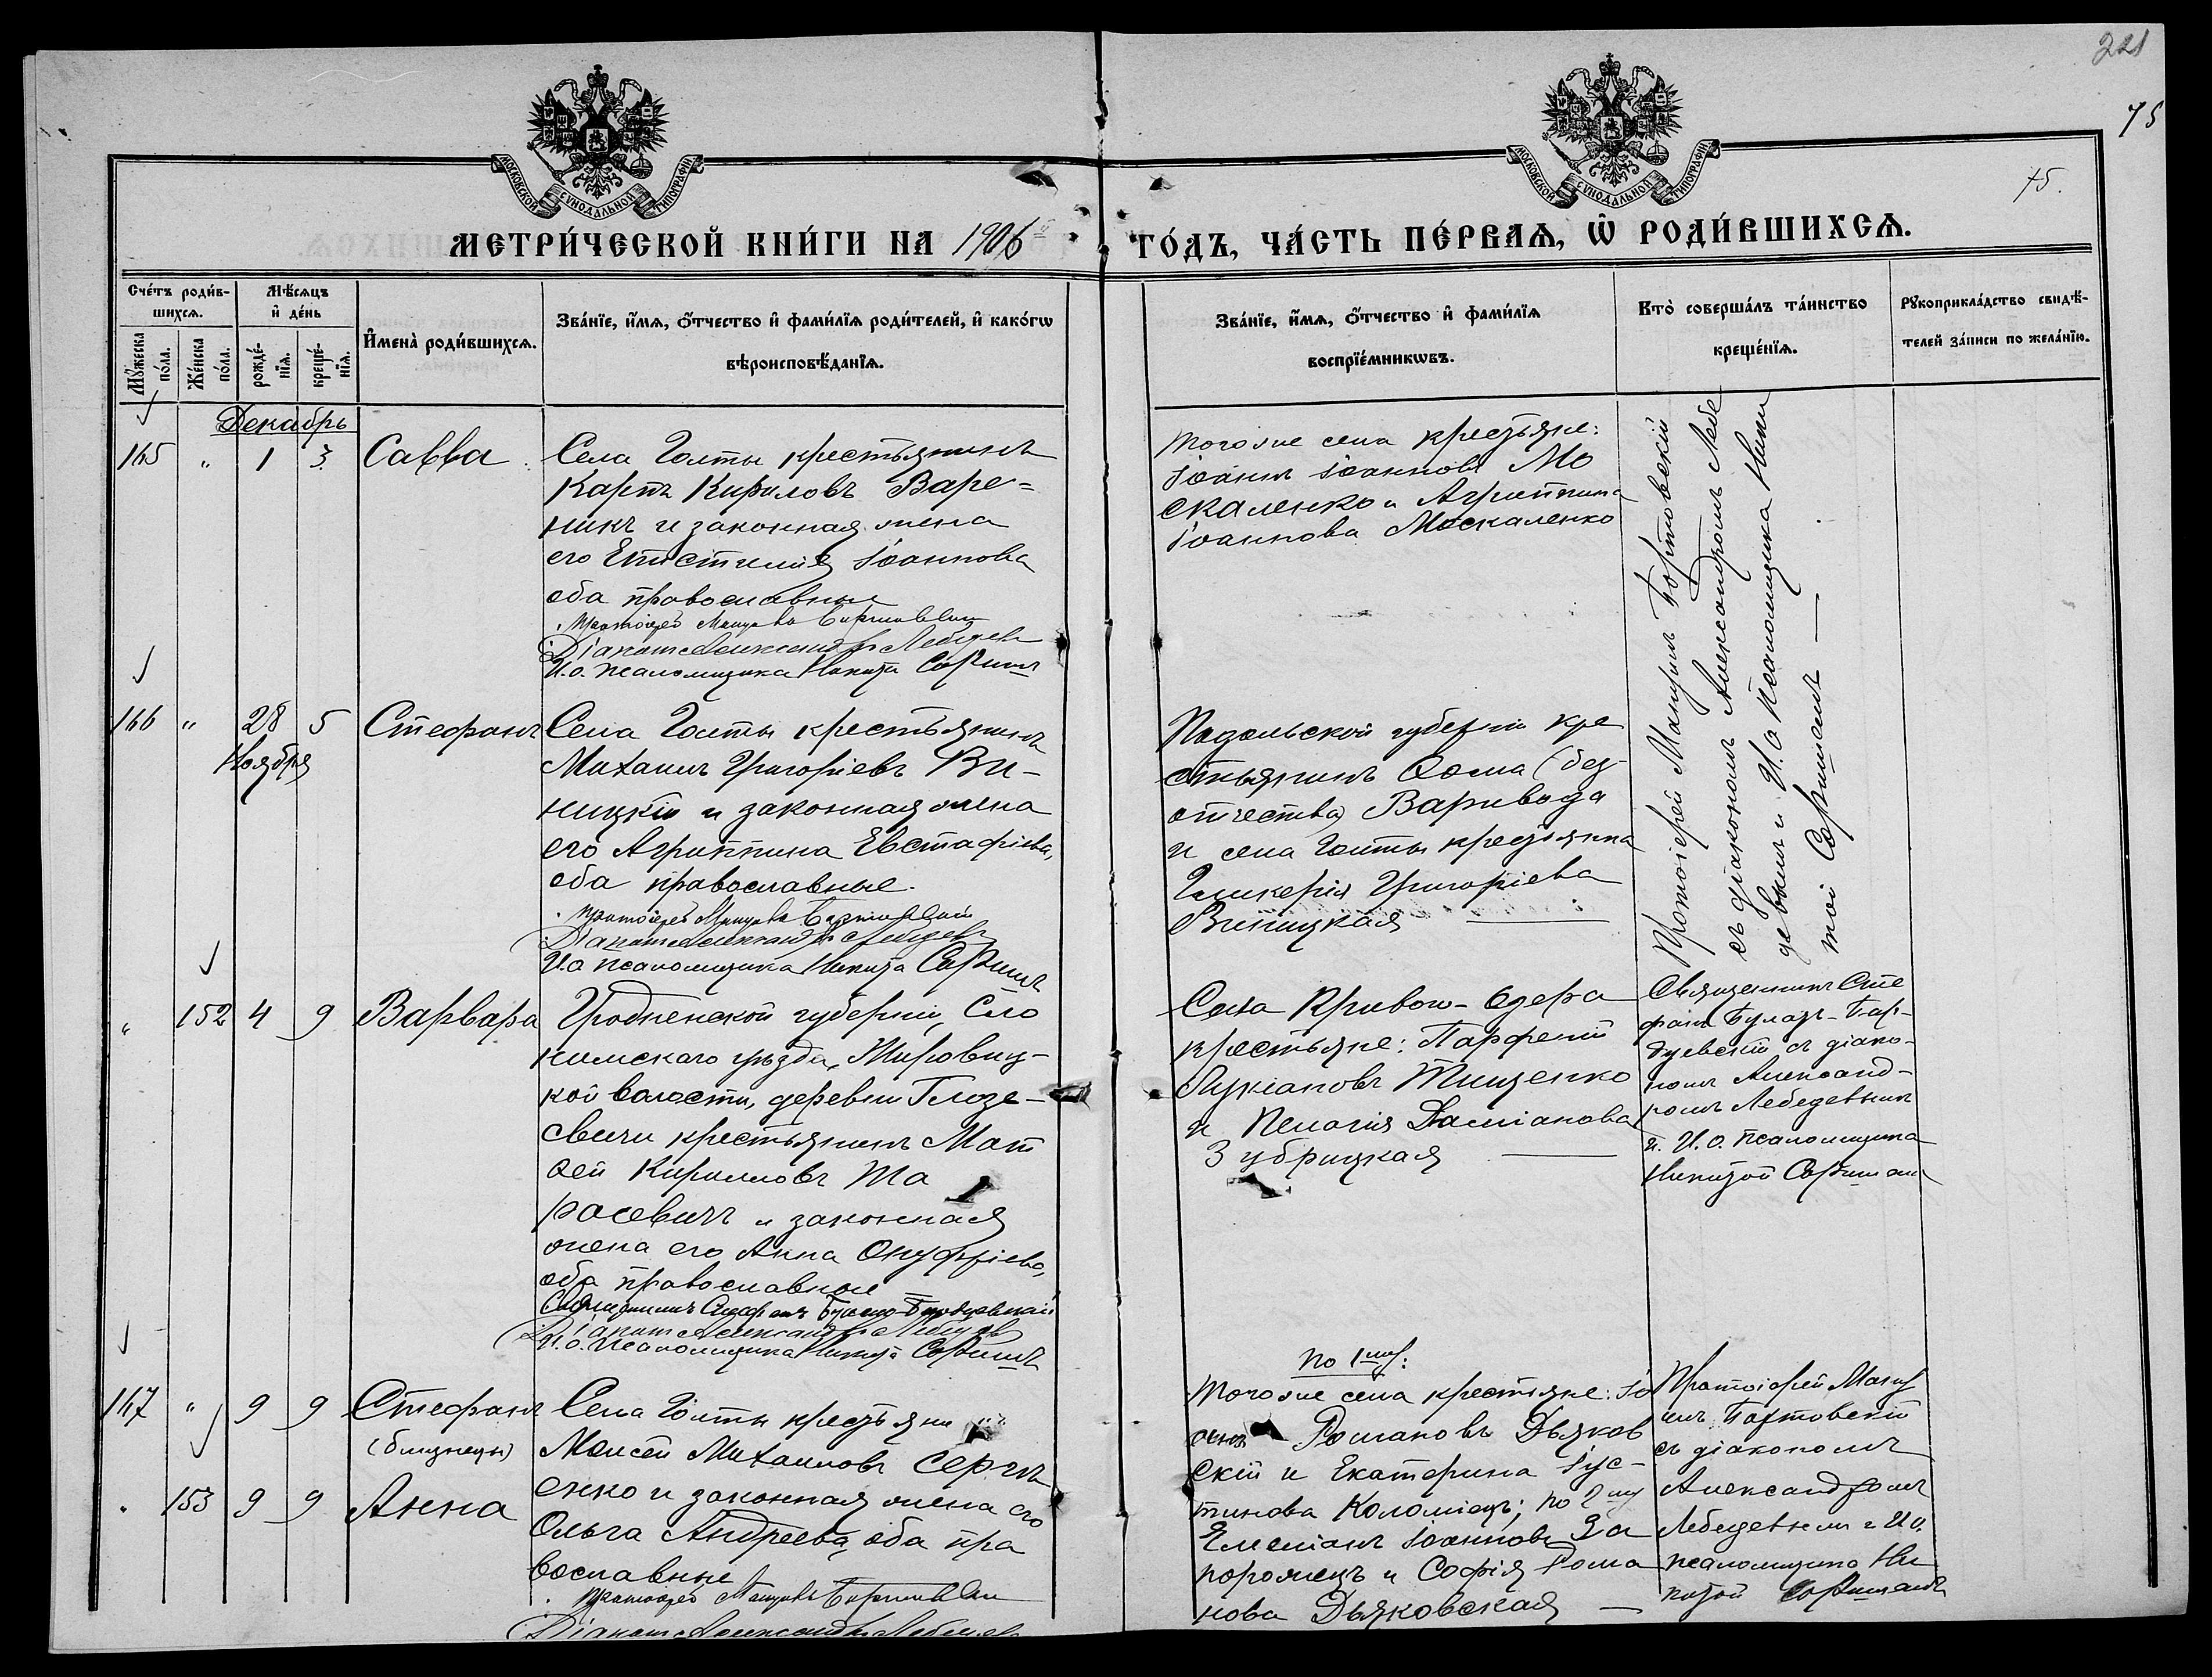 221
75
75.
МОСКОВСКОЙ СУНОДАЛЬНОЙ ТИПОГРАФІИ
МОСКОВСКОЙ СУНОДАЛЬНОЙ ТИПОГРАФІИ
МЕТРИ́ЧЕСКОЙ КНИ́ГИ НА 1906 ГО́ДЪ, ЧА́СТЬ ПЕ́РВАѦ, Ѡ҆ РОДИ́ВШИХСѦ.
Сче́тъ роди́в-
шихсѧ.
Мꙋ́жеска по́ла.
Же́нска по́ла.
Мѣ́сѧцъ
и҆ де́нь
рожде́-
нїѧ.
креще́-
нїѧ.
И҆мена̀ роди́вшихсѧ.
Зва́нїе, и҆́мѧ, ѻ҆́тчество и҆ фами́лїѧ роди́телей, и҆ како́гѡ
вѣроисповѣ́данїѧ.
Зва́нїе, и҆́мѧ, ѻ҆́тчество и҆ фами́лїѧ
воспрїе́мникѡвъ.
Кто̀ соверша́лъ та́инство
креще́нїѧ.
Рꙋкоприкла́дство свидѣ́-
телей за́писи по жела́нїю.
Декабрь
165 " 1 3 Савва
Села Голты крестьянинъ
Карпъ Кириловъ Варе-
никъ и законная жена
его Епистимія Іоаннова
оба православные
Протоіерей Мануилъ Бортовскій
Діаконъ Александръ Лебедевъ
И. о. псаломщика Никита Соршъ
Тогоже села крестьяне:
Іоаннъ Іоанновъ Мо
скаленко и Агриппина
Іоаннова Москаленко
Протоіерей Мануилъ Бортовскій
съ діакономъ Александромъ Лебе
девымъ и И. о псаломщика Ники
той
166 " 28 5 Стефанъ
Ноября
Села Голты крестьянинъ
Михаилъ Григоріевъ Ви-
ницкій и законная жена
его Агриппина Евстафіева,
оба православные.
Протоіерей Мануилъ Бортовскій
Діаконъ Александръ Лебедевъ
И. о псаломщика Никита
Подольской губерніи кре
стьянинъ Ѳома (без
отчества) Варивода
и села Голты крестьянка
Гликерія Григоріева
Виницкая
" 152 4 9 Варвара
Гродненской губерніи, Сло
нимскаго уѣзда, Жировиц-
кой волости, деревни
свичи крестьянинъ Мат
ѳей Кирилловъ Та
расевичъ и законная
жена его Анна Онуфріева,
оба православные
Священникъ Стефанъ
Діаконъ Александръ Лебедевъ
И. о. псаломщика Никита
Села Кривого-Озера
крестьяне: Парфеній
Лукіановъ Тищенко
и Пелагія Даміанова
Зубрицкая
Священникъ Сте
фанъ
съ діако-
номъ Александ-
ромъ Лебедевымъ
и И. о. псаломщика
Никитой
167 " 9 9 Стефанъ
(близнецы)
" 153 9 9 Анна
Села Голты крестьянинъ
Моисей Михаиловъ Сергѣ
енко и законная жена его
Ольга Андреева, оба пра
вославные
Протоіерей Мануилъ Бортовскій
Діаконъ Александръ Лебедевъ
По 1му:
Тогоже села крестьяне: Іо
аннъ Романовъ Дьяков
скій и Екатерина Іус-
тинова Коломіецъ; по 2му
Емеліанъ Іоанновъ За
порожецъ и Софія Рома
нова Дьяковская
Протоіерей Ману
илъ Бортовскій
съ діакономъ
Александромъ
Лебедевымъ и И о.
псаломщика Ни
китой